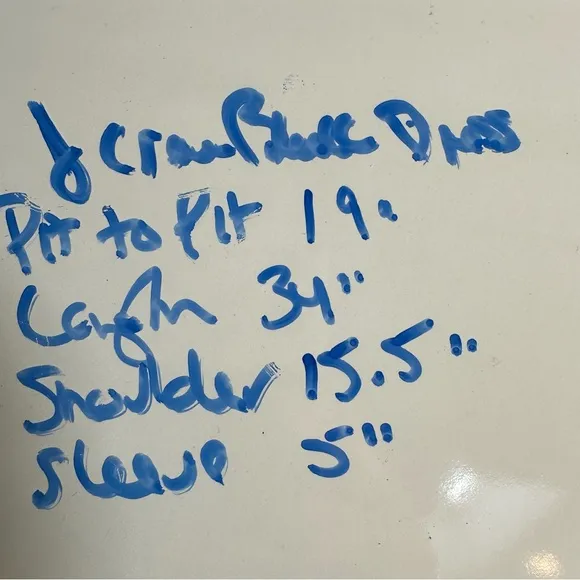 J Crew Black Dress
Pit to Pit 19"
Length 34"
Shoulder 15.5"
Sleeve 5"